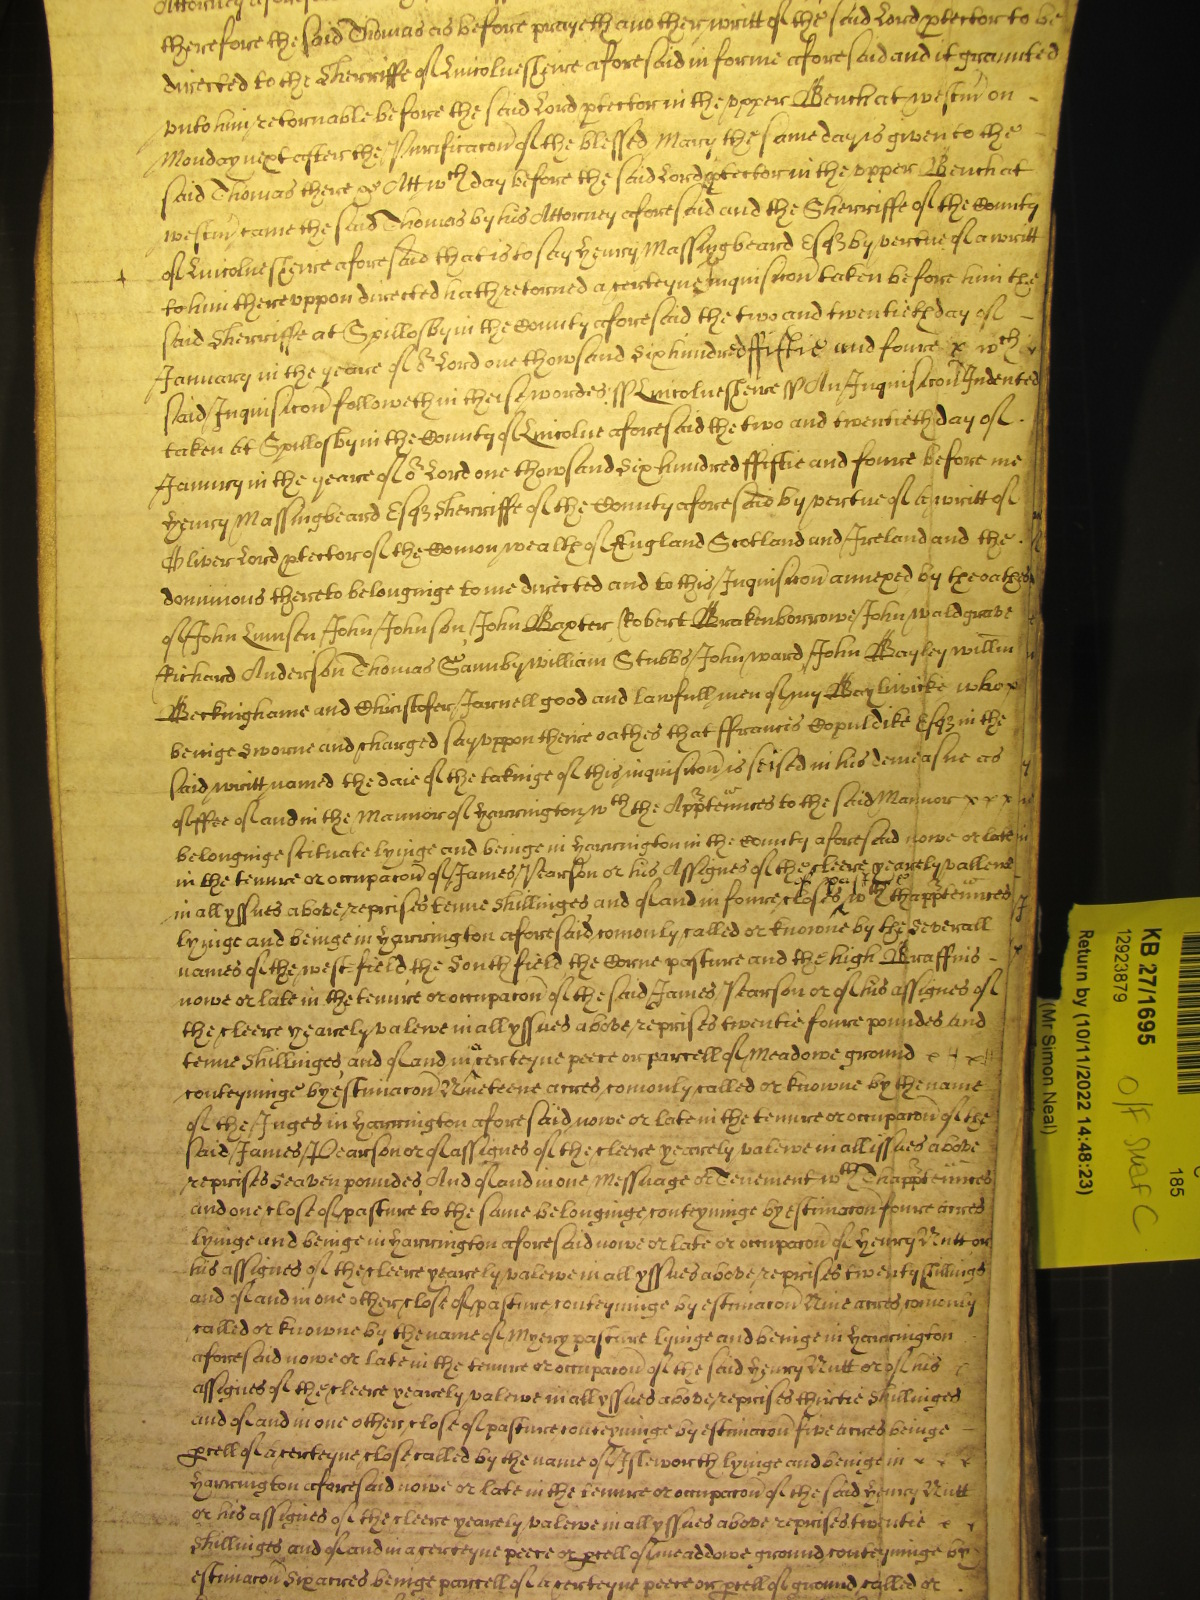 Attorney aforesaid
therefore the said Thomas as before prayeth another writt of the said Lord ptector to be
directed to the Sherriffe of Lincolnesheire aforesaid in forme aforesaid and it graunted
vnto him retornable before the said Lord ptector in the vpper Bench at westmr on -
Monday next after the Purificacon of the blessed Mary the same day is given to the
said Thomas there &c Att wch day before the said Lord ptector in the vpper Bench at
westmr came the said Thomas by his Attorney aforesaid and the Sherriffe of the County
of Lincolnesheire aforesaid that is to say Henry Massingbeard Esqr by vertue of a writt
to him therevppon directed hath retorned a certeyne Inquisicon taken before him the
said Sherriffe at Spillosby in the County aforesaid the two and twentieth day of -
January in the yeare of or Lord one thowsand six hundred ffiftie and foure x wch
said Inquisicon followeth in theise wordes ss Lincolnesheire ss An Inquisicon Indented
taken at Spillosby in the County of Lincolne aforesaid the two and twentieth day of .
Janury in the yeare of or Lord one thowsand six hundred ffiftie and foure before me
Henry Massingbeard Esqr Sherriffe of the County aforesaid by vertue of a writt of
Oliver Lord ptector of the Comon wealth of England Scotland and Ireland and the .
dominions thereto belonginge to me directed and to this Inquisicon annexed by the oathes
of John Linnsen John Johnson John Baxter Robert Brakenborrowe John waldgrave
Richard Anderson Thomas Saunby william Stubbs John ward John Bayley willm
Becknighame and Christofer Jarnell good and lawfull men of my Bayliwicke who x
beinge sworne and charged say vppon theire oathes that ffrancis Copuldike Esqr in the
said writt named the daie of the takinge of this inquisicon is seised in his demeasne as
of ffee of and in the Mannor of Harrington wth the Apptennces to the said Mannor x x x
belonginge scituate lyinge and beinge in Harrington in the County aforesaid nowe or late
in the tenure or occupacon of James Pearson or his Assignes of the cleere yearely vallewe
in all yssues above reprises tenne shillinges and of and in foure closes of pasture wth thapptennces
lyinge and beinge in Harrington aforesaid comonly called or knowne by the severall
names of the west field the South field the Corne pasture and the high Braffins -
nowe or late in the tenure or occupacon of the said James Pearson or of his assignes of
the cleere yearely valewe in all yssues above reprises twentie foure poundes and
tenne shillinges and of and in a certeyne peece or parcell of Meadowe ground x x x
conteyninge by estimacon Nineteene acres comonly called or knowne by the name
of the Inges in Harrington aforesaid nowe or late in the tenure or occupacon of the
said James Pearson or of assignes of the cleere yearely valewe in all issues above
reprises seaven poundes And of and in one Messuage or Tenement wth Thapptennces
and one close of pasture to the same belonginge conteyninge by estimacon foure acres
lyinge and beinge in Harrington aforesaid nowe or late or occupacon of Henry Nutt or
his assignes of the cleere yearely valewe in all yssues above reprises twenty shillings
and of and in one other close of pasture conteyninge by estimacon Nine acres comonly
called or knowne by the name of Myery pasture lyinge and beinge in Harrington
aforesaid nowe or late in the tenure or occupacon of the said Henry Nutt or of his
assignes of the cleere yearely valewe in all yssues above reprises thirtie shillinges
and of and in one other close of pasture conteyninge by estimacon five acres beinge -
pcell of a certeyne close called by the name of Isleworth lyinge and beinge in x x x
Harrington aforesaid nowe or late in the tenure or occupacon of the said Henry Nutt
or his assignes of the cleere yearely valewe in all yssues above reprises twentie x x
shillinges and of and in a certeyne peece or pcell of meaddowe ground conteyninge by
estimacon six acres beinge parcell of a certeyne peece or pcell of ground called or .
KB 27/1695
12923879
Return by (10/11/2022 14:48:23)
(Mr Simon Neal)
185
O/F Shelf C